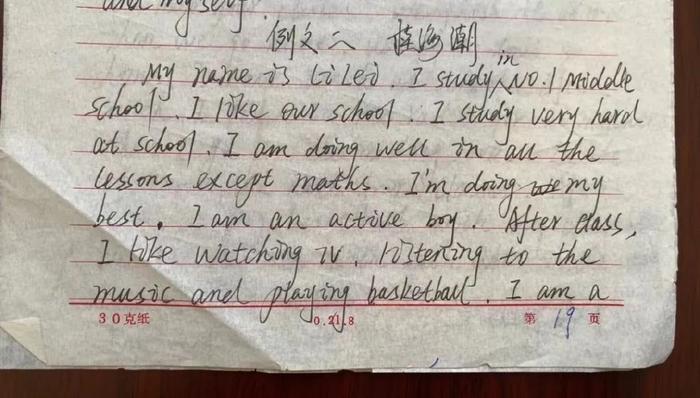 and myself.
例文六 桂海潮
My name is Li Lei. I study in No.1 Middle
school. I like our school. I study very hard
at school. I am doing well in all the
lessons except maths. I'm doing my
best. I am an active boy. After class,
I like watching TV, listening to the
music and playing basketball. I am a
30克纸 0.21.8 第 19 页